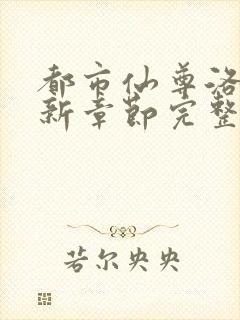 都市仙尊洛
新章节完整
若尔央央